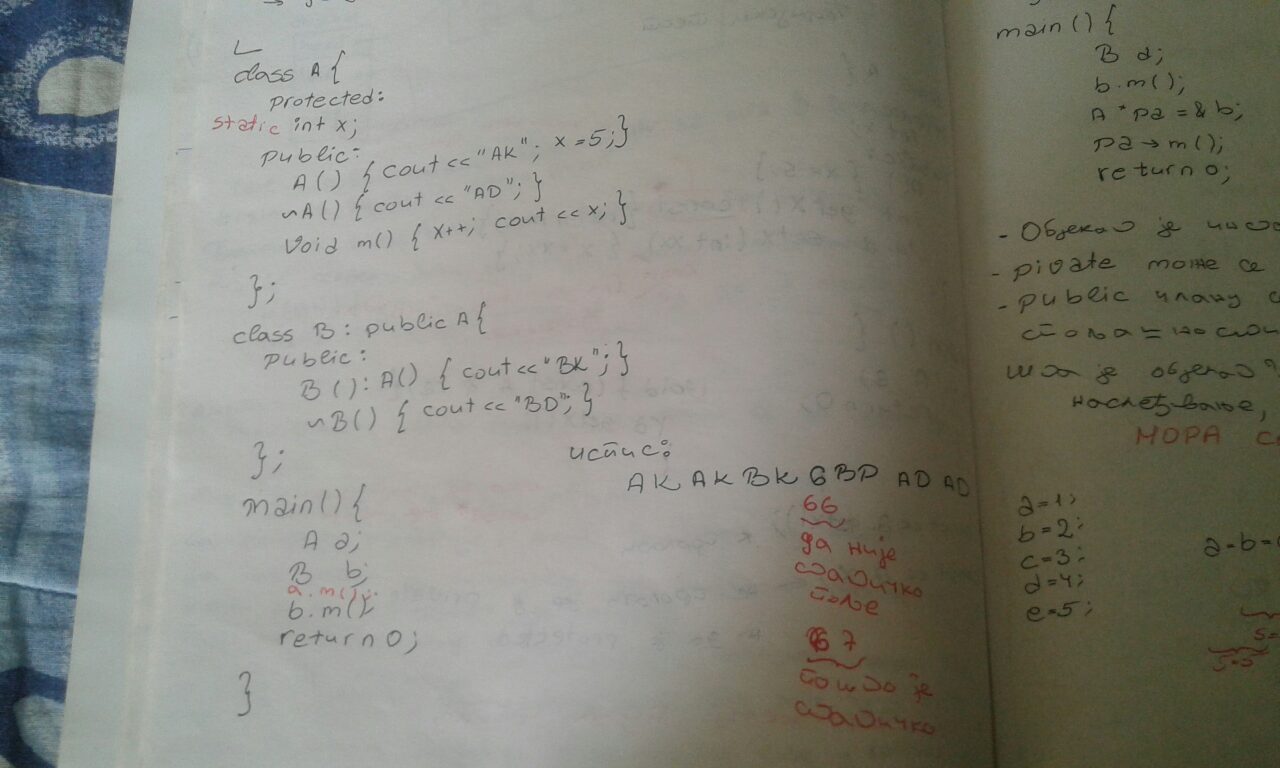 class A {
protected:
static int x;
public:
A() { cout << "AK"; x = 5; }
~A() { cout << "AD"; }
void m() { x++; cout << x; }
};
class B : public A {
public:
B() : A() { cout << "BK"; }
~B() { cout << "BD"; }
};
main() {
A a;
B b;
a.m();
b.m()
return 0;
}
испис:
AK AK BK 6 BD AD AD
66
да није
статичко
поље
67
пошто је
статичко
main() {
B a;
b.m();
A * pa = & b;
pa → m();
return 0;
- Објекат је
- pivate може се
- public члану
шта је објекат?
наслеђивање,
МОРА
a=1;
b=2;
c=3;
d=4;
e=5;
a=b=